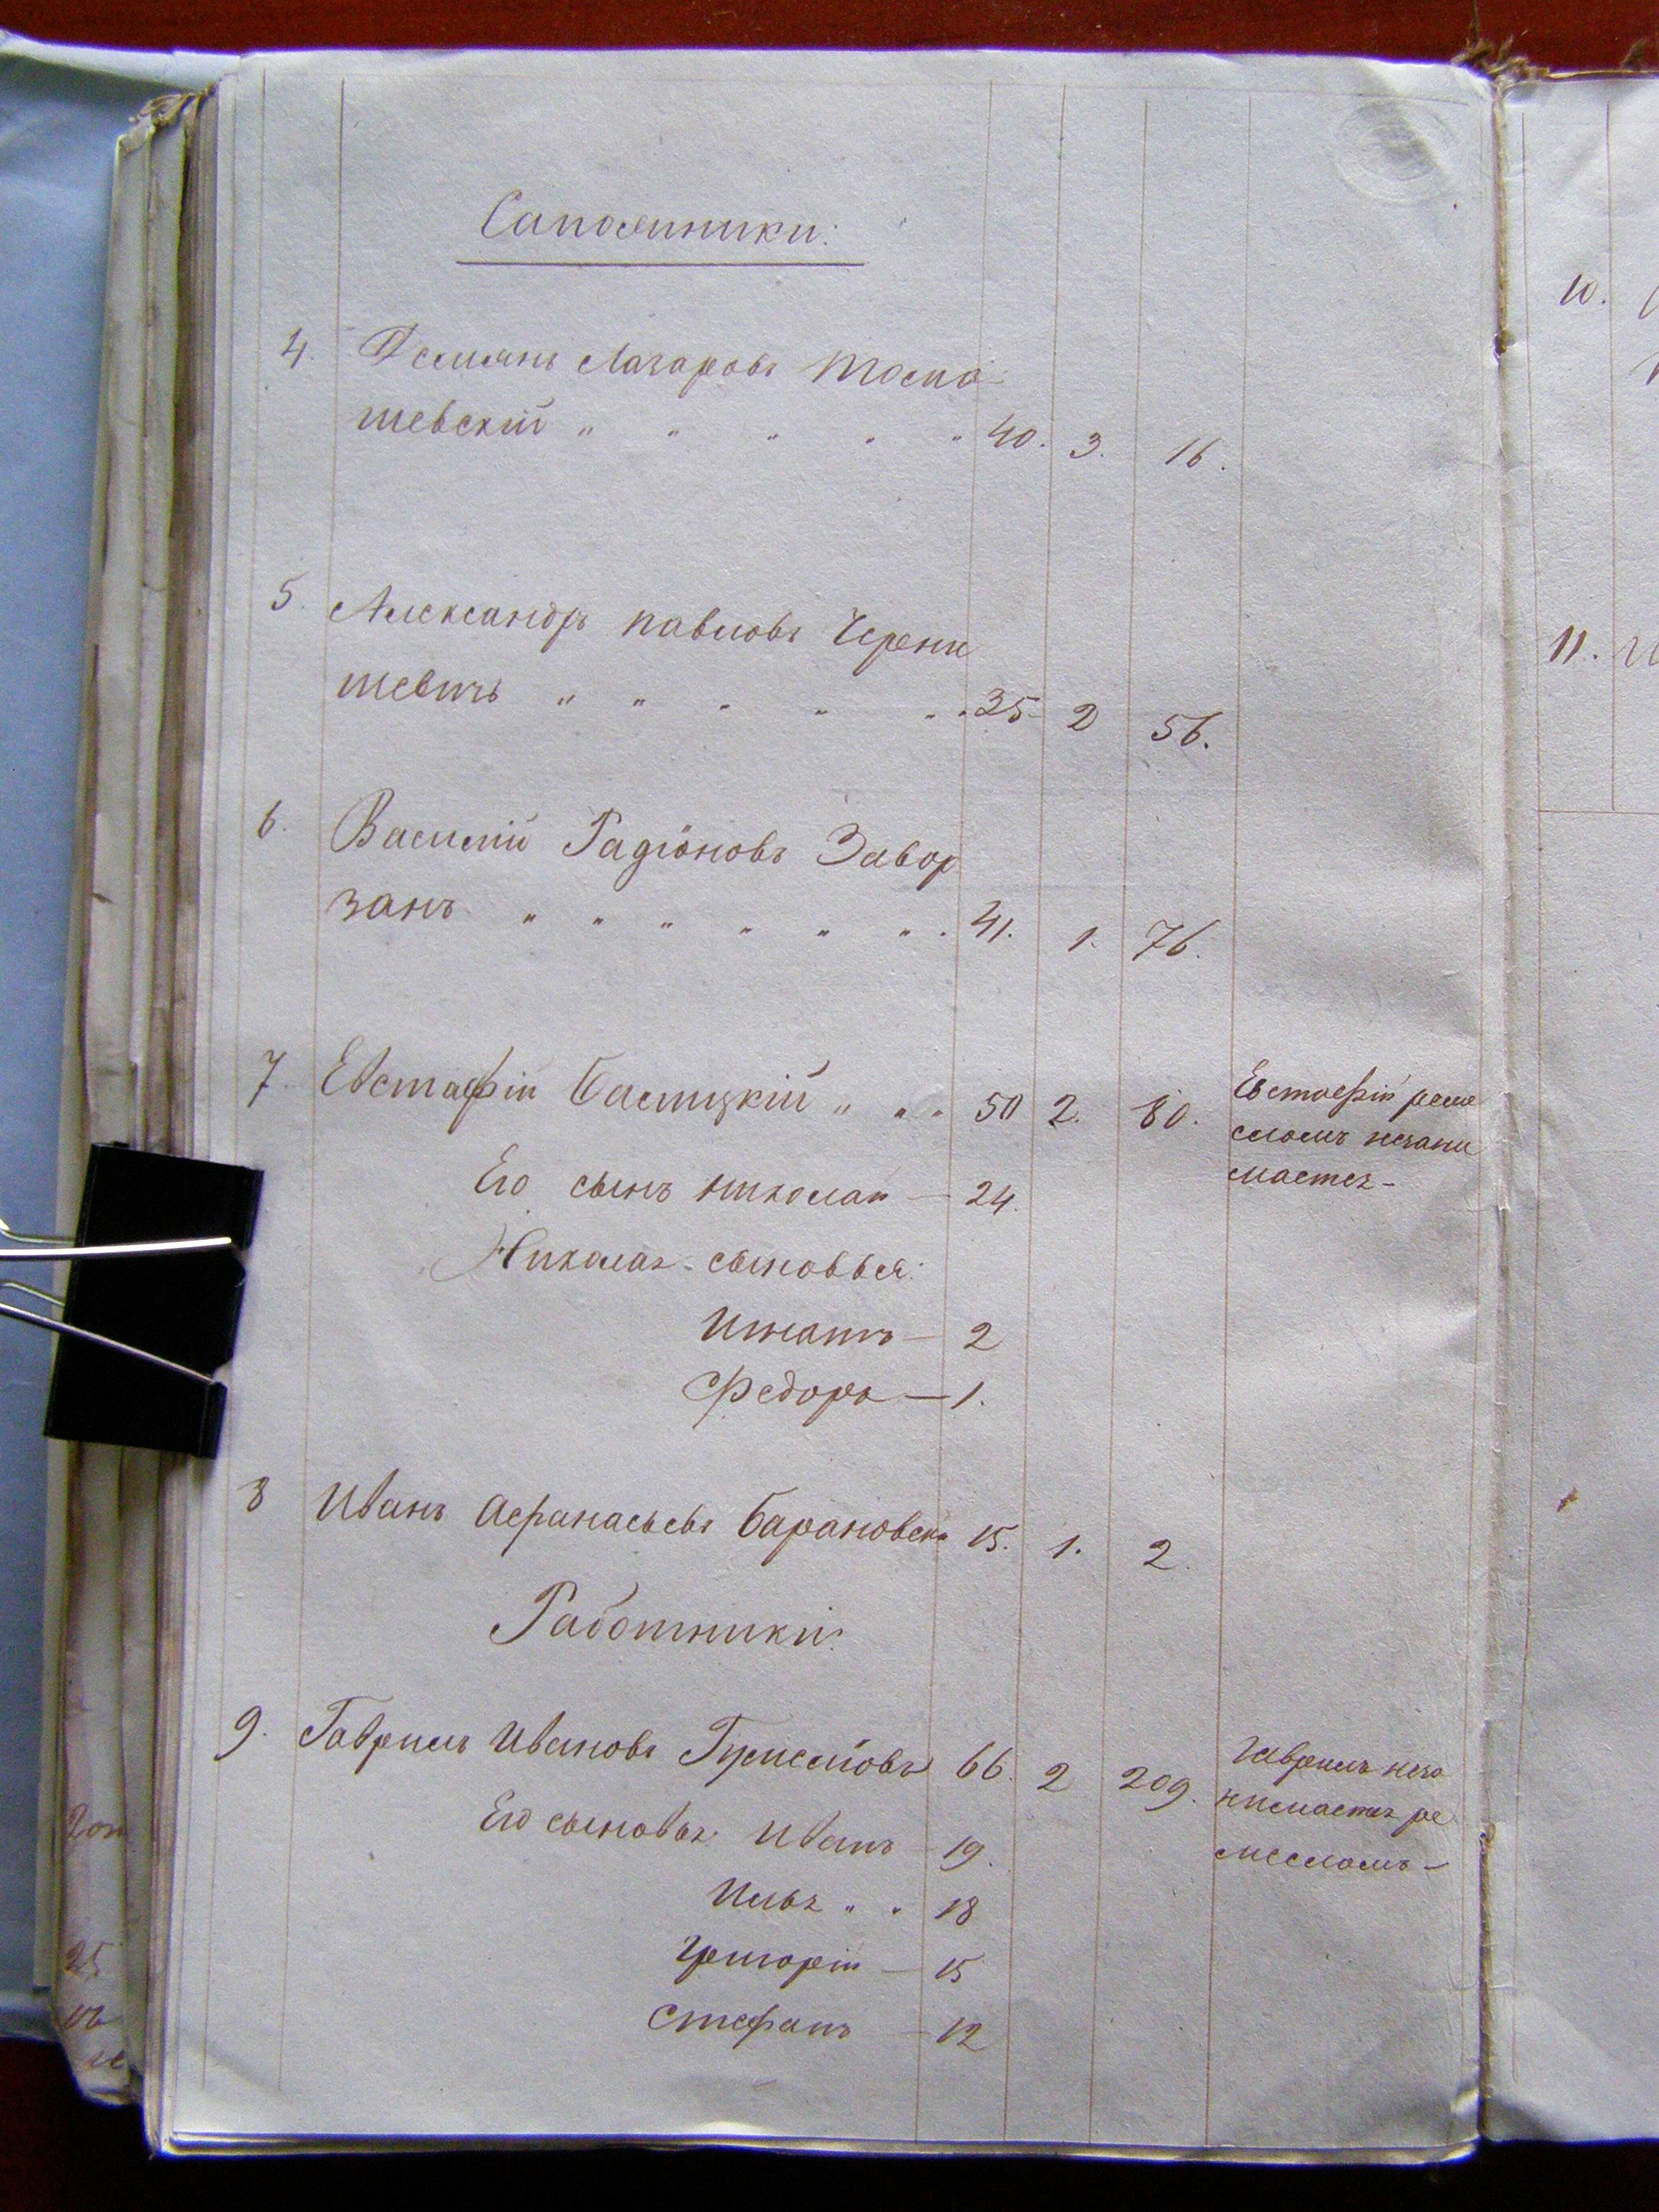 Сапожники:
4. Демьянъ Лазаровъ Тома-
шевскій " " " " " 40. 3. 16.
5. Александръ Павловъ Черни
шевичъ " " " " " 35 2 56.
6. Василій Радіоновъ Завор
занъ " " " " " " 41. 1. 76.
7 Евстафій Балицкій " " " 50 2. 80.
Евстафій реме
сломъ незани
мается-
Его сынъ Николай — 24.
Николая сыновья:
Игнатъ — 2
Федоръ — 1.
8 Иванъ Афанасьевъ Барановскій 15. 1. 2.
Работники:
9. Гаврилъ Ивановъ 66. 2 209.
Гаврилъ неза
нимается ре
месломъ-
Его сыновья: Иванъ — 19.
Илья " " 18
Григорій — 15
Стефанъ — 12
10.
11. И